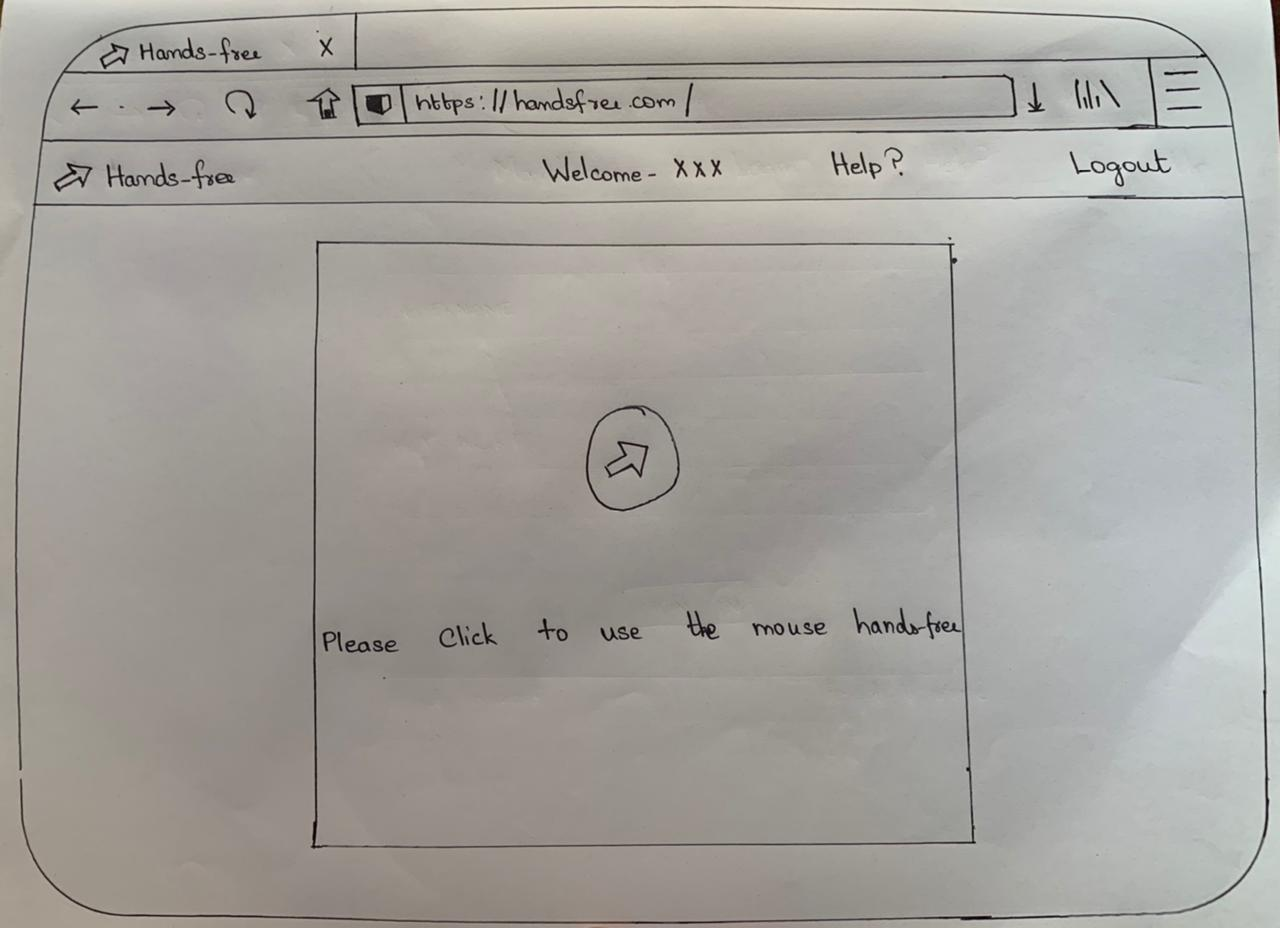 Hands-free X
https://handsfree.com/
Hands-free Welcome - XXX Help? Logout
Please Click to use the mouse hands-free